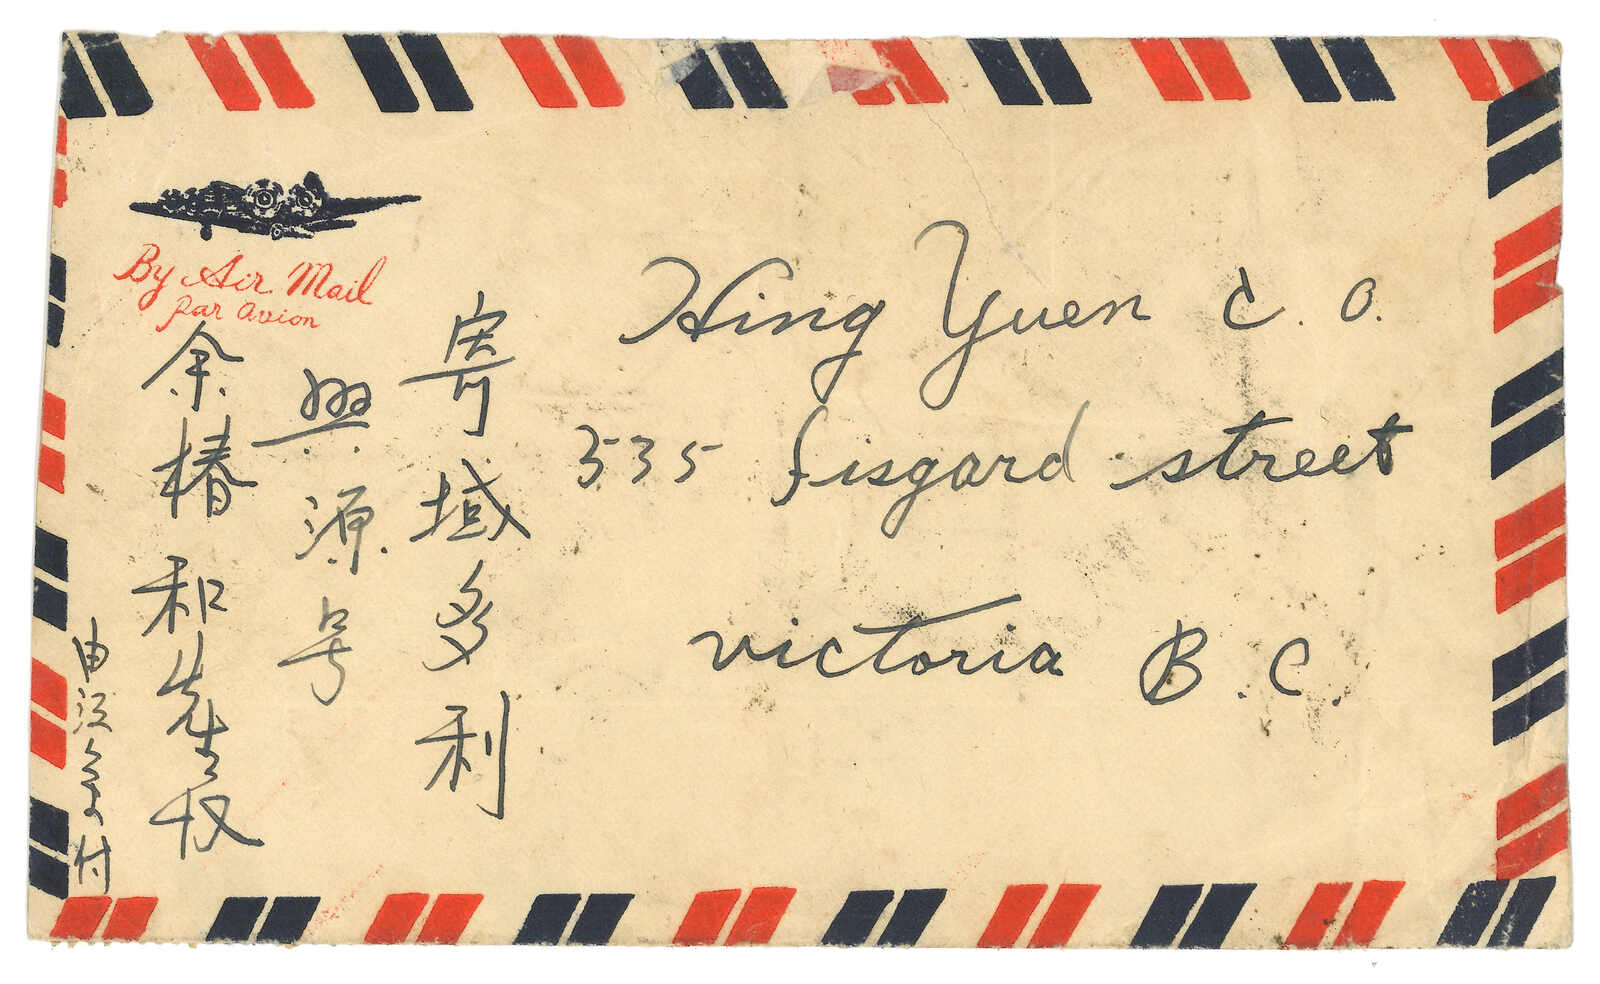 By Air Mail
Par Avion
Hing Yuen C.O.
535 fisgard street
victoria B.C.
寄域多利
興源号
余椿和先生收
付